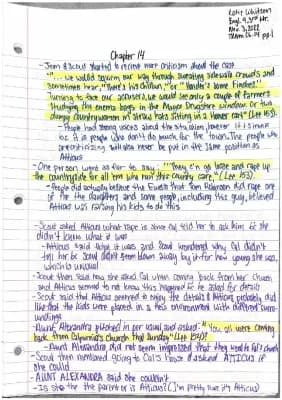 Engl. 9, 3rd Hr.
Nov 3, 2022
TKAM Ch. 14 pg. 1
Chapter 14
- Jem & Scout started to receive more criticism about the case
- "... we would squirm our way through sweating sidewalk crowds and
sometimes hear, "There's his chillun," or, "Yonder's some Finches."
Turning to face our accusers, we would see only a couple of farmers
studying the enema bags in the Mayco Drugstore window. Or two
dumpy countrywomen in straw hats sitting in a Hoover cart" (Lee 153).
- People had strong voices about the situation, however it is
bc it is people who don't do much for the town. The people who
are criticizing will also never be put in the same position as
Atticus
- One person went as far to say, "They c'n go loose and rape up
the countryside for all 'em who run this county care," (Lee 153).
- People did actually believe the Ewells that Tom Robinson did rape one
of the daughters and some people, including this guy, believed
Atticus was raising his kids to do this
- Scout asked Atticus what rape is since Cal told her to ask him & she
didn't know what it was
- Atticus said what it was and Scout wondered why Cal didn't
tell her bc Scout didn't seem blown away by it for how young she was,
which is unusual
- Scout then said how she asked Cal when coming back from her church
and Atticus seemed to not know this happened & he asked for details
- Scout said that Atticus seemed to enjoy the details & Atticus probably did
like that the kids were placed in a new environment with different surr-
oundings
- Aunt Alexandra pitched in per usual and asked: "You all were coming
back from Calpurnia's church that Sunday" (Lee 154)?
- Aunt Alexandra did not seem impressed that they went to Cal's church
- Scout then mentioned going to Cal's house & asked ATTICUS if
she could
- AUNT ALEXANDRA said she couldn't
- Is she the parent or is Atticus? (I'm pretty sure it's Atticus)